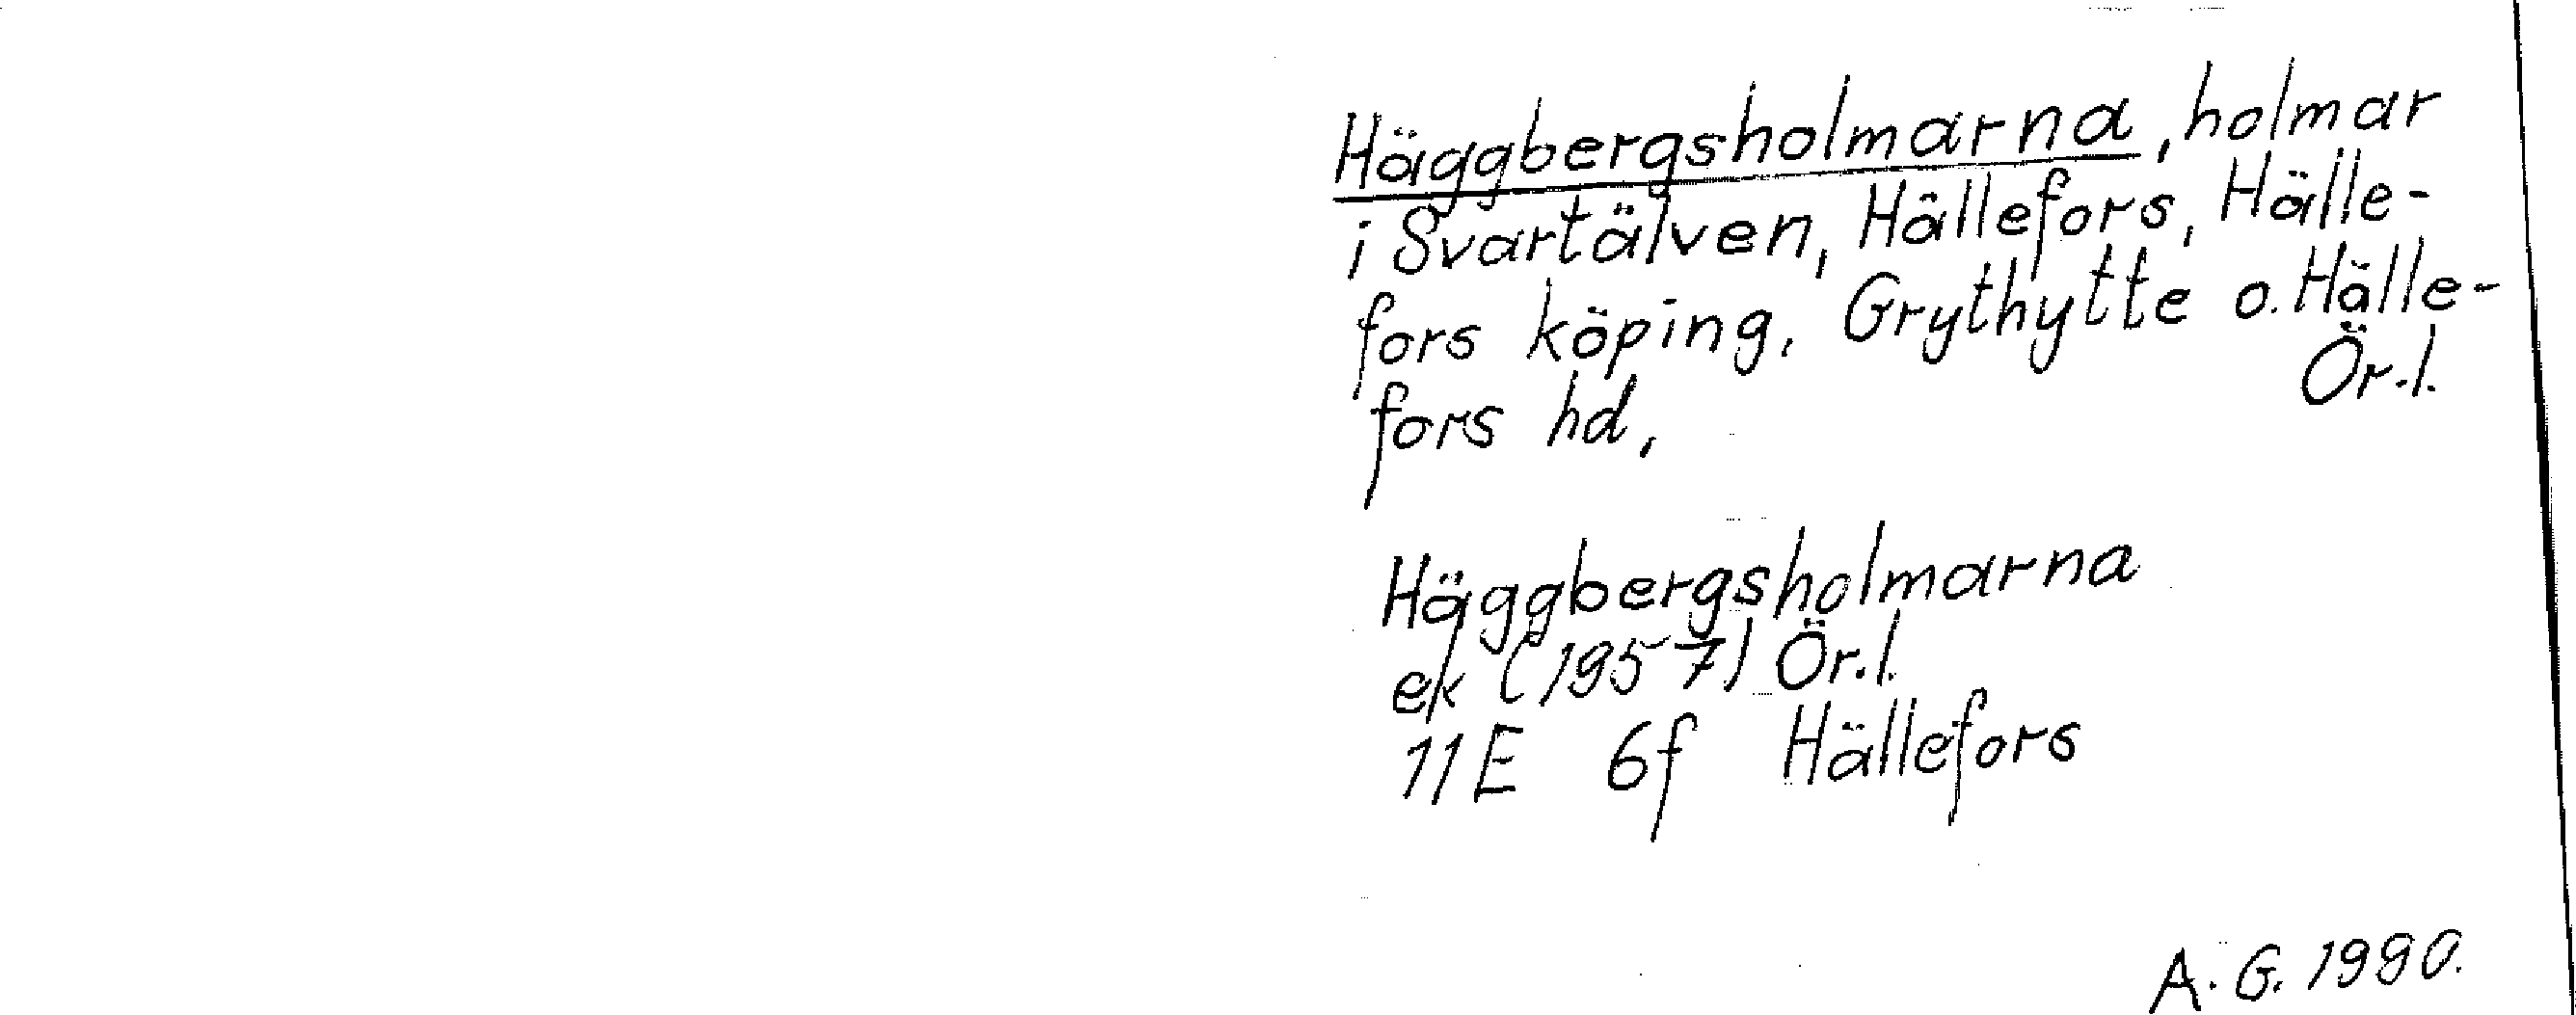 Häggbergsholmarna, holmar
i Svartälven, Hällefors, Hälle-
fors köping, Grythytte o. Hälle-
fors hd, Ör.l.
Häggbergsholmarna
ek (1957) Ör.l.
11E 6f Hällefors
A. G. 1990.